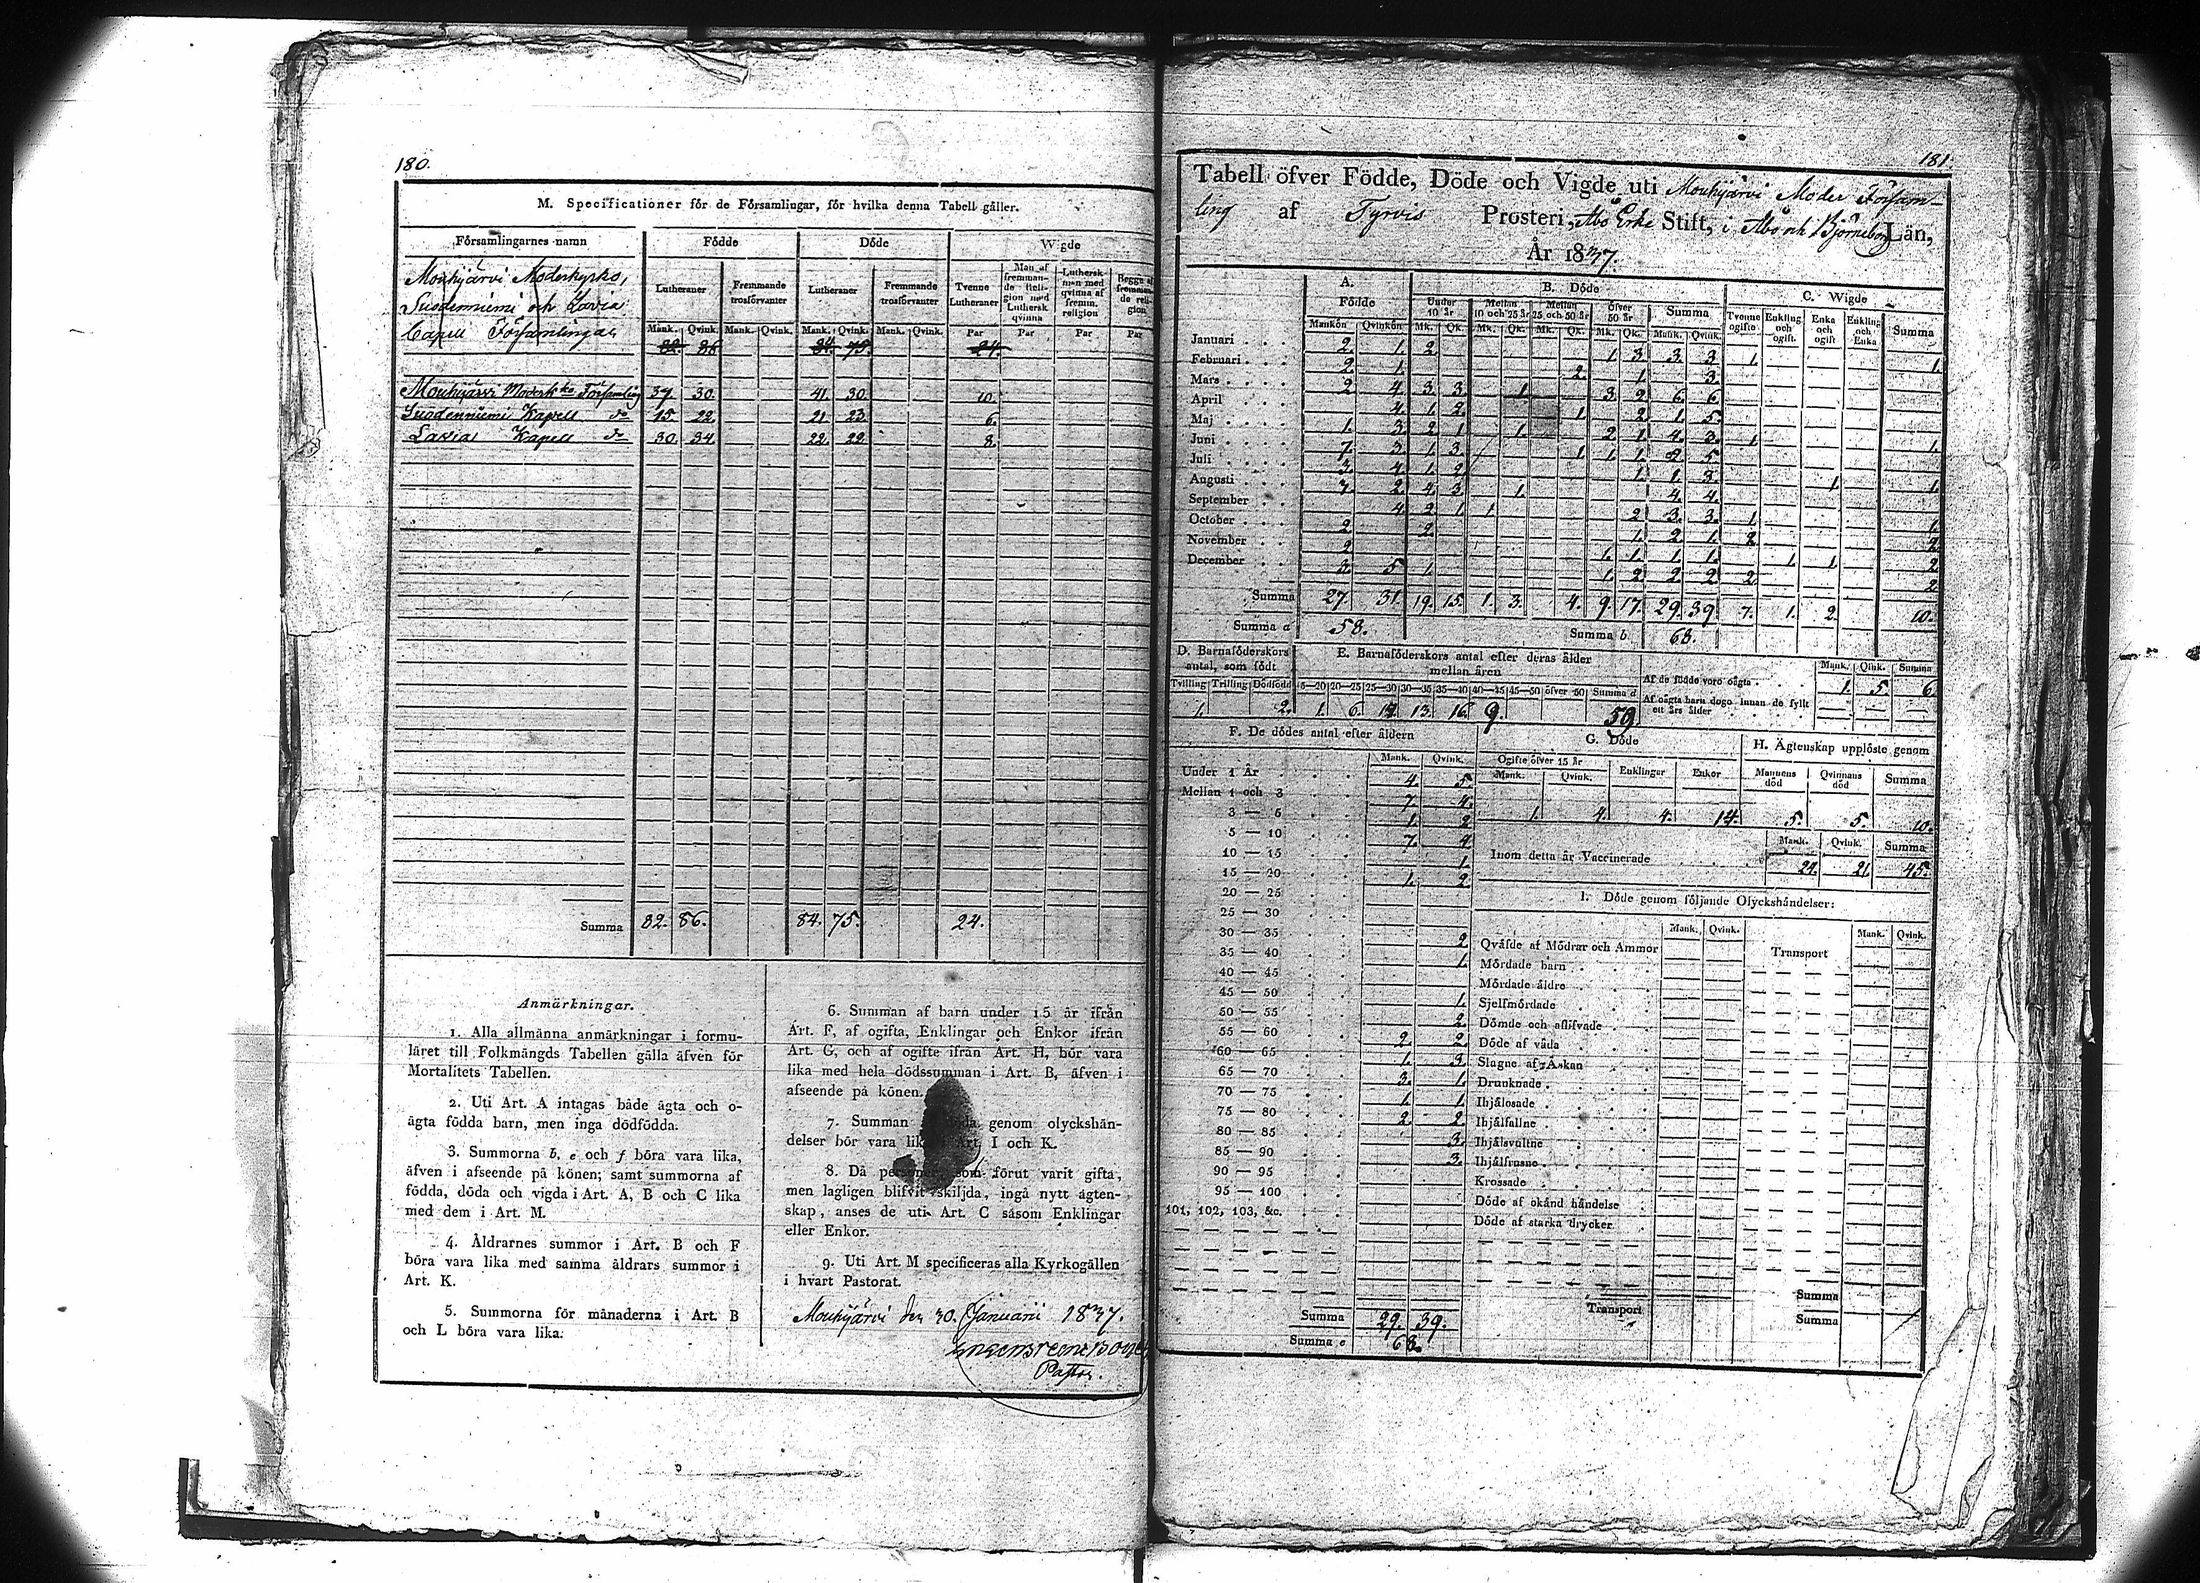 180.
M. Specificationer för de Församlingar, för hvilka denna Tabell gäller.
Församlingarnes namn Födde Döde Wigde
Lutheraner Fremmande trosförvanter Lutheraner Fremmande trosförvanter Tvenne Lutheraner Man af fremmande Religion med Luthersk qvinna Luthersk man med qvinna af fremm. religion Begge af fremmande religion
Mank. Qvink. Mank. Qvink. Mank. Qvink. Mank. Qvink. Par Par Par Par
Mouhijärvi Moderkyrko,
Suodenniemi och Lavia
Capell Församlingar 82. 86. 84. 75. 24.
Mouhijärvi Moderk:ko Församling 37 30. 41. 30. 10.
Suodenniemi Kapell do 15 22. 21 23 6.
Lavia Kapell do 30. 34. 22. 22. 8.
Summa 82. 86. 84. 75. 24.
Anmärkningar.
1. Alla allmänna anmärkningar i formu-
läret till Folkmängds Tabellen gälla äfven för
Mortalitets Tabellen.
2. Uti Art. A intagas både ägta och o-
ägta födda barn, men inga dödfödda.
3. Summorna b, e och f böra vara lika,
äfven i afseende på könen; samt summorna af
födda, döda och vigda i Art. A, B och C lika
med dem i Art. M.
4. Åldrarnes summor i Art. B och F
böra vara lika med samma åldrars summor i
Art. K.
5. Summorna för månaderna i Art. B
och L böra vara lika.
6. Summan af barn under 15 år ifrån
Art. F, af ogifta, Enklingar och Enkor ifrån
Art. G, och af ogifte ifrån Art. H, bör vara
lika med hela dödssumman i Art. B, äfven i
afseende på könen.
7. Summan genom olyckshän-
delser bör vara lik Art. I och K.
8. Då personer som förut varit gifta,
men lagligen blifvit skiljda, ingå nytt ägten-
skap, anses de uti Art. C såsom Enklingar
eller Enkor.
9. Uti Art. M specificeras alla Kyrkogällen
i hvart Pastorat.
Mouhijärvi den 30. Januarii 1837.
Pastor.
181.
Tabell öfver Födde, Döde och Vigde uti Mouhijärvi Moder Försam-
ling af Tyrvis Prosteri, Åbo Erke Stift, i Åbo och Björneborgs Län,
År 1837.
A. Födde B. Döde C. Wigde
Under 10 år Mellan 10 och 25 år Mellan 25 och 50 år öfver 50 år Summa Tvenne ogifte Enkling och ogift. Enka och ogift Enkling och Enka Summa
Mankön Qvinkön Mk. Qk. Mk. Qk. Mk. Qk. Mk. Qk. Mank. Qvink.
Januari 2. 1. 2. 1. 3. 3. 3. 1. 1.
Februari 2. 1. 2. 1. 3.
Mars 2 4. 3. 3. 1. 3. 2. 6. 6.
April 4. 1. 2. 1. 2. 1. 5.
Maj 1. 3. 2. 1. 1. 2. 1. 4. 3. 1. 1.
Juni 7. 3. 1. 3. 1. 1. 1. 2. 5.
Juli 3. 4. 1. 2. 1. 1. 3. 1. 1.
Augusti 7. 2. 4. 3. 1. 4. 4.
September 4. 2. 1. 1. 2. 3. 3. 1. 1.
October 2. 2. 1. 2. 1. 2. 2.
November 2. 1. 1. 1. 1. 1. 1. 2.
December 3. 5. 1. 1. 2. 2. 2. 2. 2.
Summa 27. 31. 19. 15. 1. 3. 4. 9. 17. 29. 39. 7. 1. 2. 10.
Summa a 58. Summa b 68.
D. Barnaföderskors antal, som födt
Tvilling Trilling Dödfödd
1. 2.
E. Barnaföderskors antal efter deras ålder
mellan åren
15—20 20—25 25—30 30—35 35—40 40—45 45—50 öfver 50 Summa d
1. 6. 14. 13. 16. 9. 59.
Mank. Qink. Summa
Af de födde voro oägta 1. 5. 6.
Af oägta barn dogo innan de fyllt
ett års ålder — — —
F. De dödes antal efter åldern
Mank. Qvink.
Under 1 År 4. 5.
Mellan 1 och 3 7. 4.
3 — 5 1. 2.
5 — 10 7. 4.
10 — 15 1.
15 — 20 1. 2.
20 — 25
25 — 30
30 — 35 2.
35 — 40 1.
40 — 45
45 — 50 1.
50 — 55 2.
55 — 60 2. 2.
60 — 65 1. 3.
65 — 70 3. 1.
70 — 75 1. 1.
75 — 80 2. 2.
80 — 85 3.
85 — 90 3.
90 — 95
95 — 100
101, 102, 103, &c.
Summa 29. 39.
Summa e 68.
G. Döde
Ogifte öfver 15 år Enklingar Enkor
Mank. Qvink.
1. 4. 4. 14.
H. Ägtenskap upplöste genom
Mannens död Qvinnans död Summa
5. 5. 10.
Mank. Qvink. Summa
Inom detta år Vaccinerade 24. 21. 45.
I. Döde genom följande Olyckshändelser:
Mank. Qvink. Transport Mank. Qvink.
Qväfde af Mödrar och Ammor
Mördade barn
Mördade äldre
Sjelfmördade
Dömde och aflifvade
Döde af våda
Slagne af Åskan
Drunknade
Ihjälosade
Ihjälfallne
Ihjälsvultne
Ihjälfrusne
Krossade
Döde af okänd händelse
Döde af starka drycker
Transport
Summa
Summa